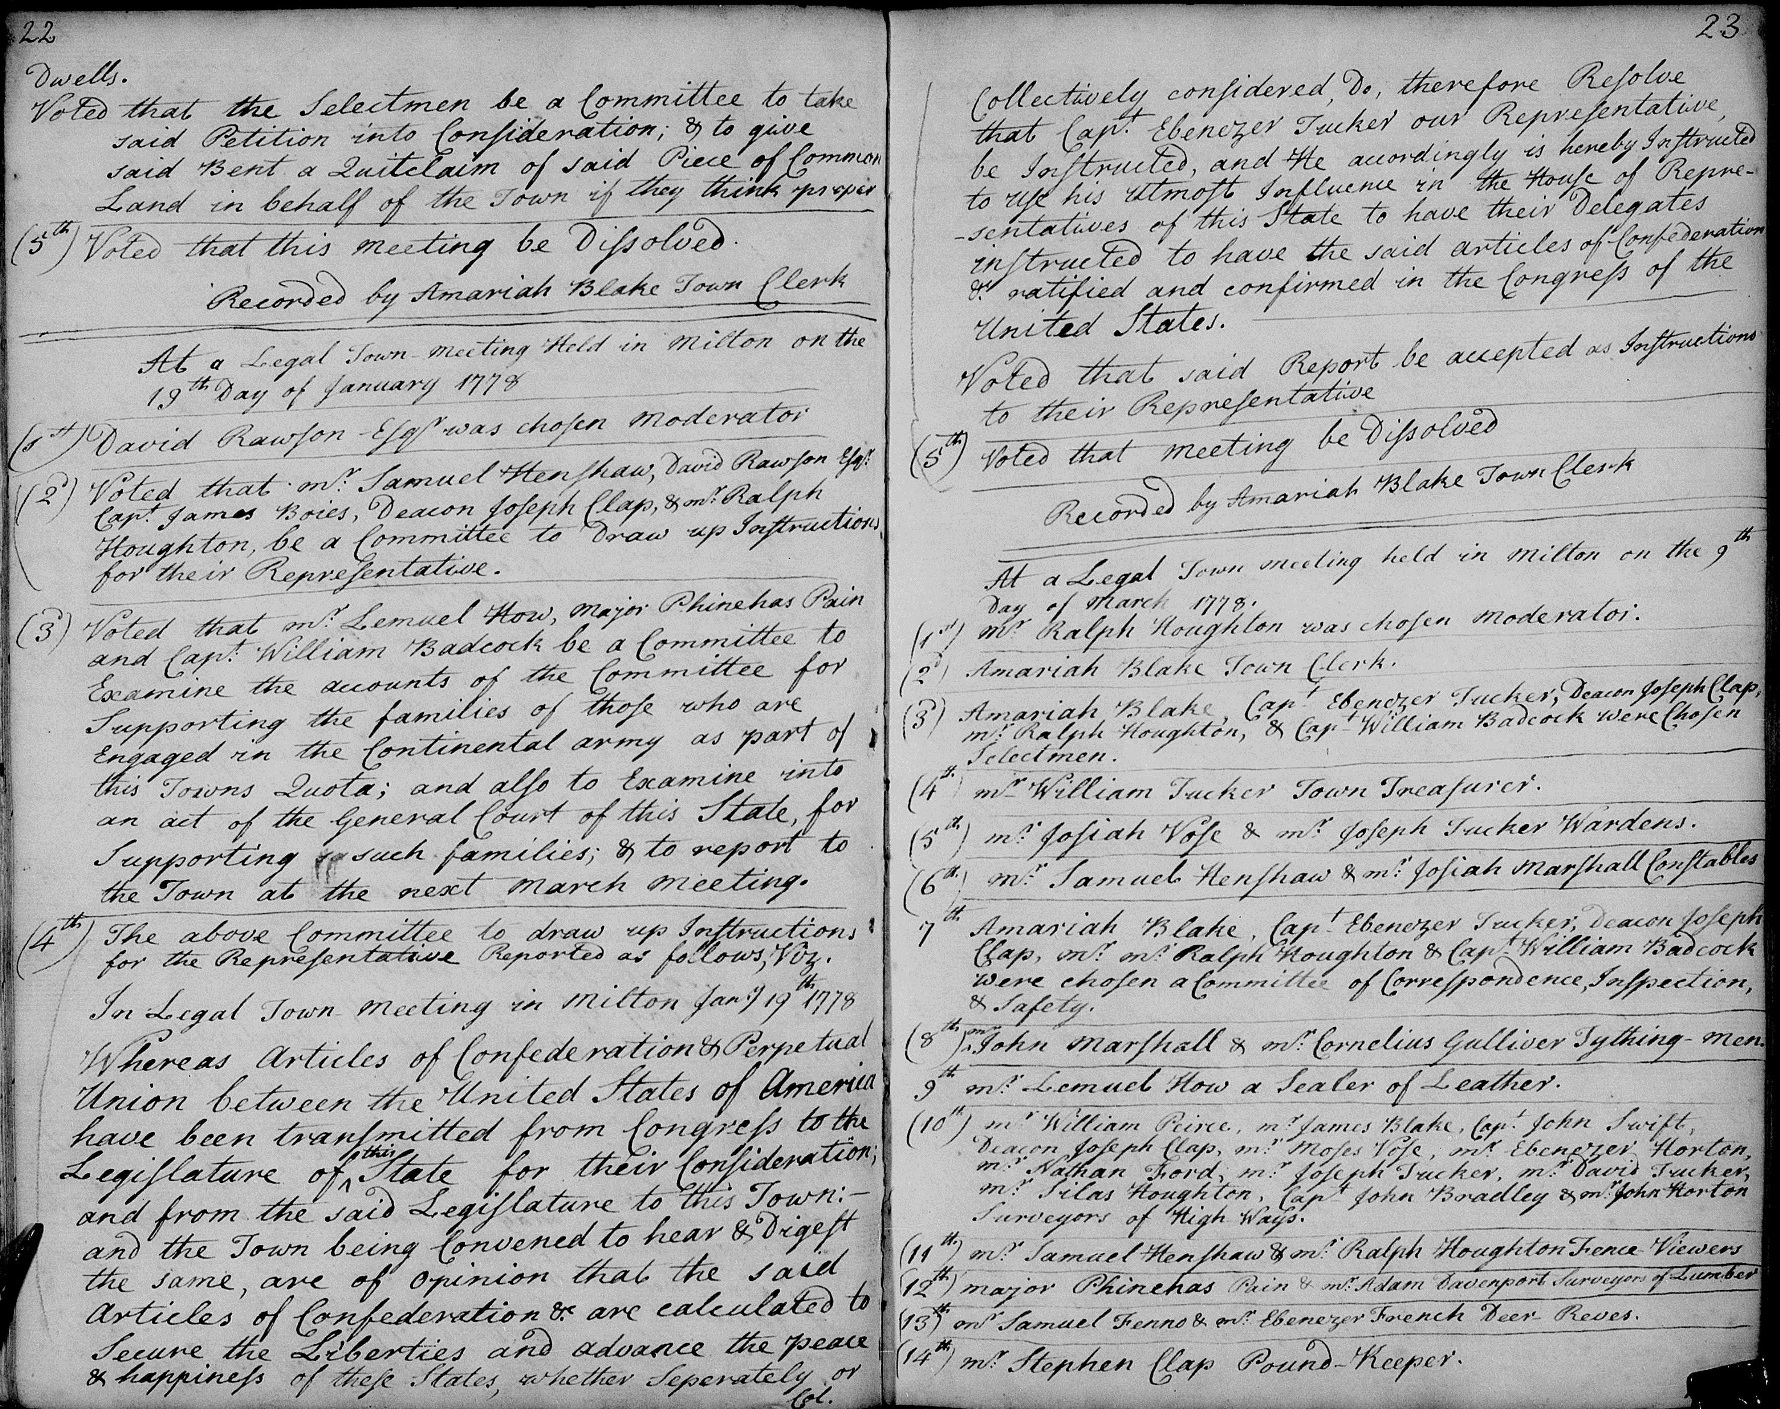 22
Dwells.
Voted that the Selectmen be a Committee to take
said Petition into Consideration; & to give
said Bent a Quitclaim of said Piece of Common
Land in behalf of the Town if they think proper
(5th) Voted that this meeting be Dissolved.
Recorded by Amariah Blake Town Clerk
At a Legal Town meeting Held in Milton on the
19th Day of January 1778
(1st) David Rawson Esqr was chosen moderator
(2d) Voted that mr. Samuel Henshaw, David Rawson Esqr.
Capt. James Boies, Deacon Joseph Clap, & mr. Ralph
Houghton, be a Committee to Draw up Instructions
for their Representative.
(3d) Voted that mr. Lemuel How, major Phinehas Pain
and Capt. William Badcock be a Committee to
Examine the accounts of the Committee for
Supporting the families of those who are
Engaged in the Continental army as part of
this Towns Quota; and also to Examine into
an act of the General Court of this State, for
Supporting such families; & to report to
the Town at the next march meeting.
(4th) The above Committee to draw up Instructions
for the Representative Reported as follows, Viz.
In Legal Town meeting in Milton Jany 19th 1778
Whereas Articles of Confederation & Perpetual
Union between the United States of America
have been transmitted from Congress to the
Legislature of this State for their Consideration;
and from the said Legislature to this Town:-
and the Town being Convened to hear & Digest
the same, are of opinion that the said
Articles of Confederation &c are calculated to
Secure the Liberties and advance the peace
& happiness of these States, whether Seperately or
Col.
23
Collectively considered, Do, therefore Resolve
that Capt. Ebenezer Tucker our Representative,
be Instructed, and He accordingly is hereby Instructed
to use his utmost Influence in the House of Repre-
-sentatives of this State to have their Delegates
instructed to have the said articles of Confederation
&c ratified and confirmed in the Congress of the
United States.
Voted that said Report be accepted as Instructions
to their Representative
(5th) Voted that meeting be Dissolved
Recorded by Amariah Blake Town Clerk
At a Legal Town meeting held in Milton on the 9th
Day of March 1778.
(1st) mr Ralph Houghton was chosen moderator.
(2d) Amariah Blake Town Clerk.
(3d) Amariah Blake, Capt Ebenezer Tucker, Deacon Joseph Clap,
mr. Ralph Houghton, & Capt William Badcock were Chosen
Selectmen.
(4th) mr William Tucker Town Treasurer.
(5th) mr. Josiah Vose & mr. Joseph Tucker Wardens.
(6th) mr. Samuel Henshaw & mr. Josiah Marshall Constables
7th Amariah Blake, Capt Ebenezer Tucker, Deacon Joseph
Clap, mr. mr. Ralph Houghton & Capt William Badcock
were chosen a Committee of Correspondence, Inspection,
& Safety.
(8th) mr John Marshall & mr. Cornelius Gulliver Tything-men
9th mr. Lemuel How a Sealer of Leather.
(10th) mr William Peirce, mr James Blake, Capt John Swift,
Deacon Joseph Clap, mr. Moses Vose, mr. Ebenezer Horton,
mr. Nathan Ford, mr. Joseph Tucker, mr. David Tucker,
mr. Silas Houghton, Capt John Bradley & mr. John Horton
Surveyors of High Ways.
(11th) mr. Samuel Henshaw & mr. Ralph Houghton Fence Viewers
(12th) major Phinehas Pain & mr. Adam Davenport Surveyors of Lumber
(13th) mr Samuel Fenno & mr. Ebenezer French Deer Reves.
(14th) mr. Stephen Clap Pound-Keeper.